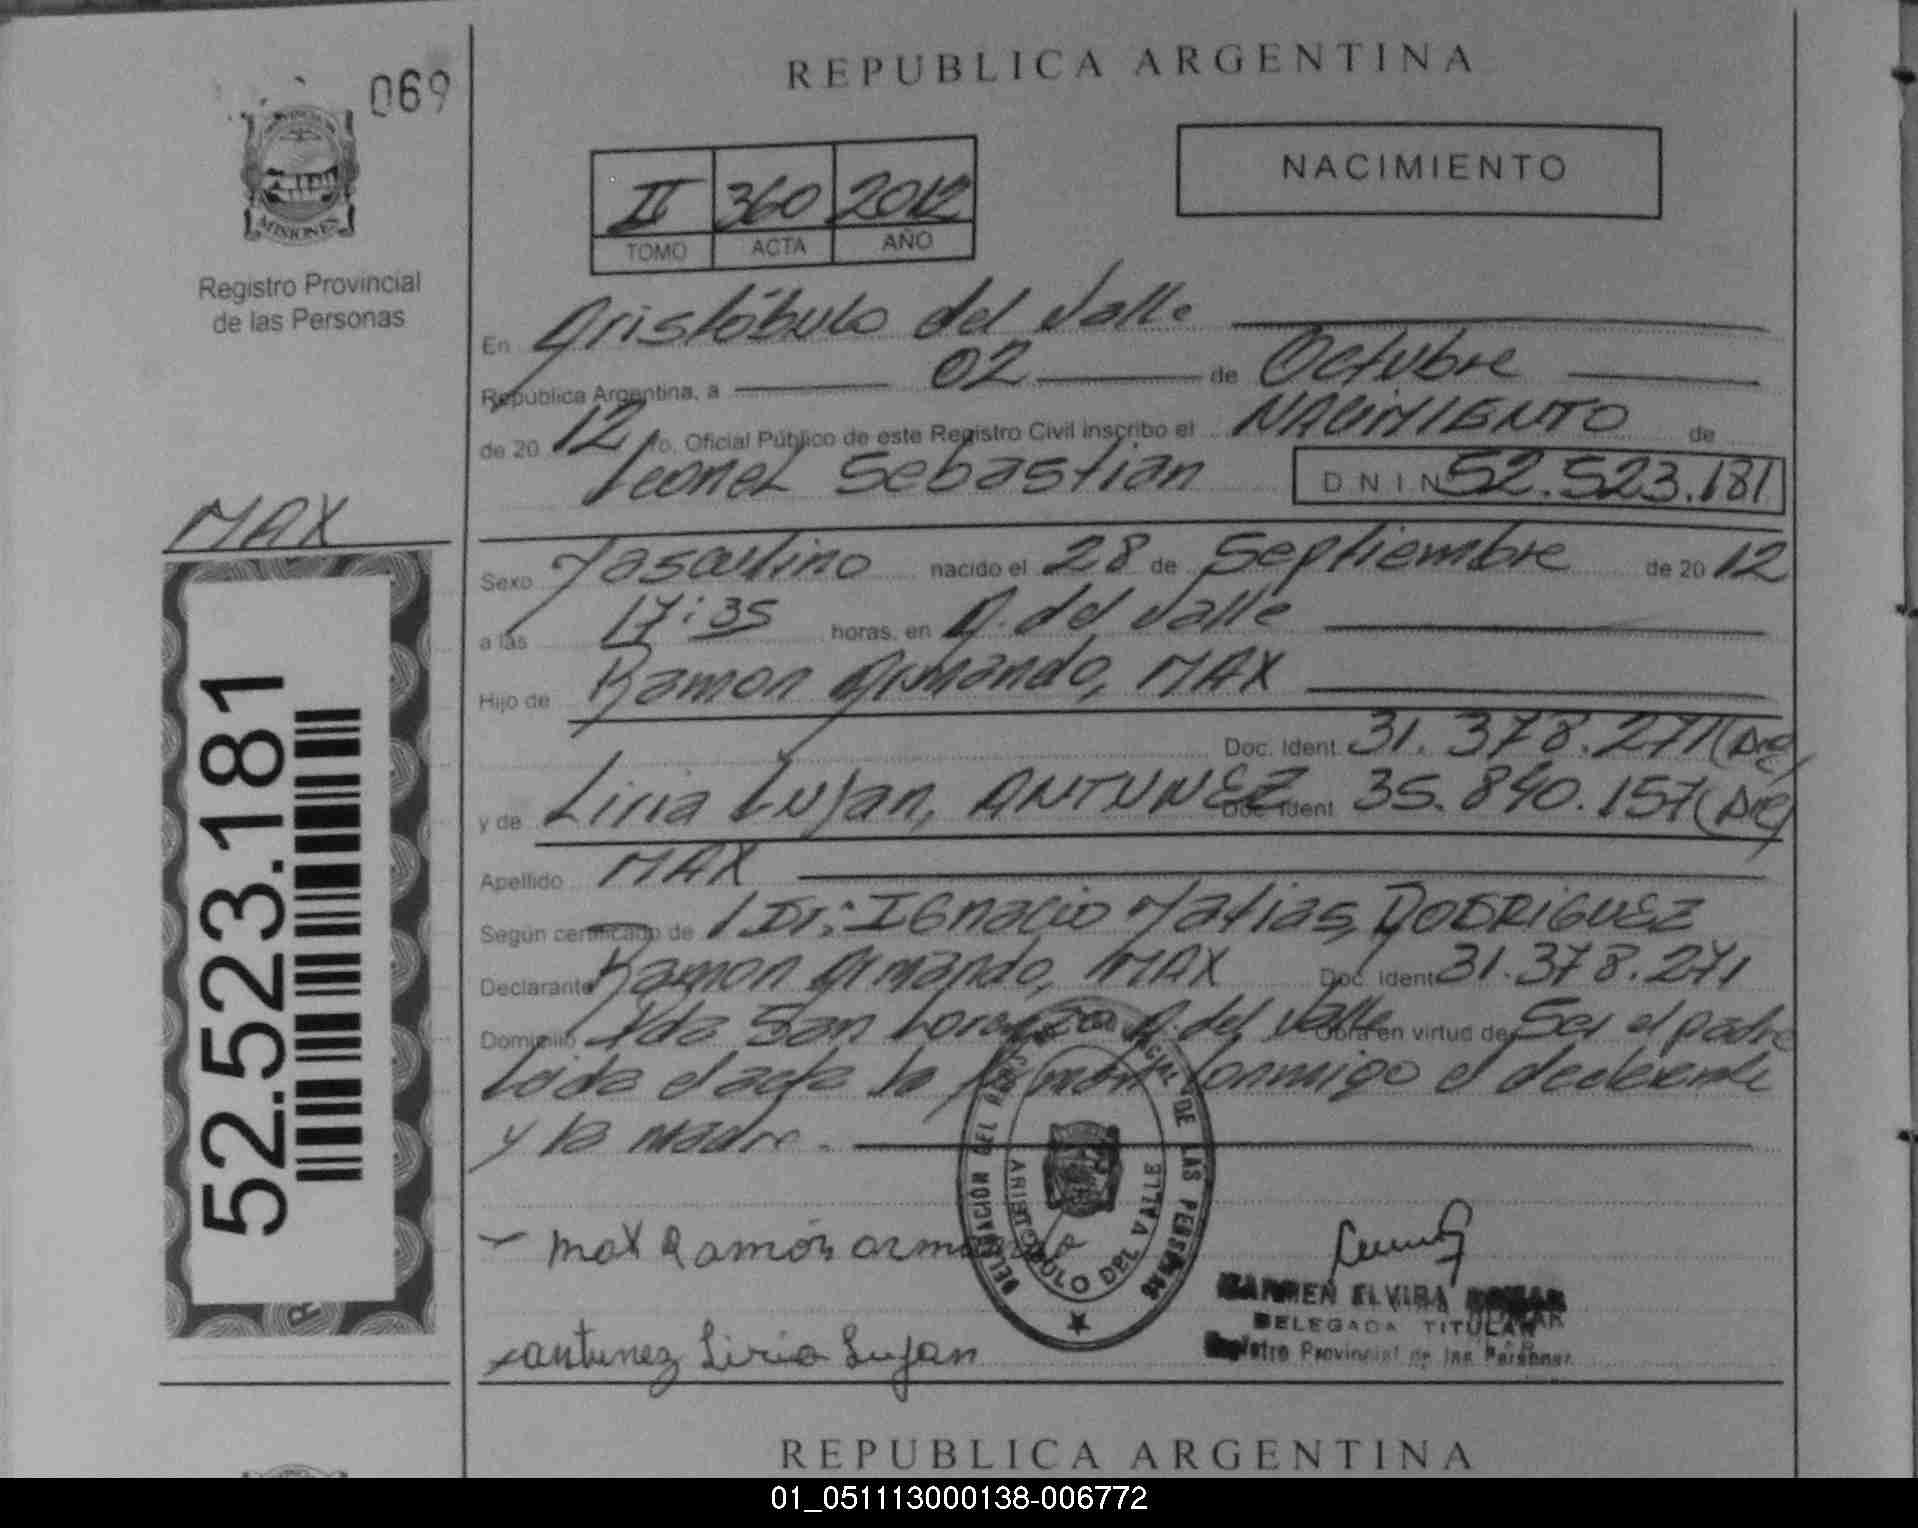 069
REPUBLICA ARGENTINA
NACIMIENTO
II 360 2012
TOMO ACTA AÑO
MISIONES
Registro Provincial
de las Personas
En Aristóbulo del Valle
República Argentina, a 02 de Octubre
de 2012 Yo, Oficial Público de este Registro Civil inscribo el NACIMIENTO de
Leonel Sebastian DNI N 52.523.181
MAX
52.523.181
Sexo Masculino nacido el 28 de Septiembre de 2012
a las 17:35 horas, en A. del Valle
Hijo de Ramon Armando, MAX
Doc. Ident. 31.378.271
y de Liria Lujan, ANTUNEZ Doc. Ident. 35.840.157
Apellido MAX
Según certificado de Dr: Ignacio Matias, RODRIGUEZ
Declarante Ramon Armando, MAX Doc. Ident. 31.378.271
Domicilio San Lorenzo A. del Valle Obra en virtud de Ser el padre
Leida el acta la firman conmigo el declarante
y la madre.
DELEGACION DEL REGISTRO PROVINCIAL DE LAS PERSONAS
ARISTOBULO DEL VALLE
Max Ramón armando
antunez Liria Lujan
CARMEN ELVIRA
DELEGADA TITULAR
Registro Provincial de las Personas
REPUBLICA ARGENTINA
01_051113000138-006772